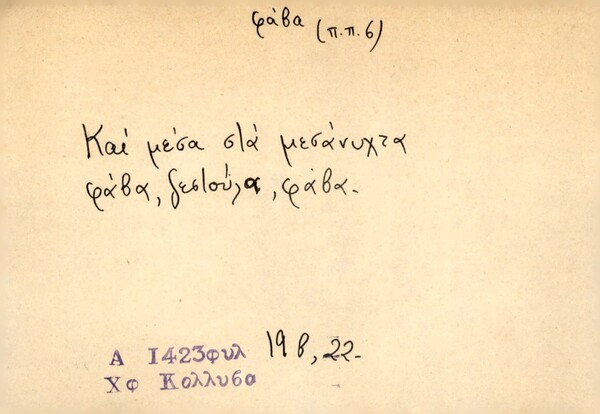 φάβα (π.π.6)
Καί μέσα στά μεσάνυχτα
φάβα, ζεστούλα, φάβα.
Α 1423φυλ 19β, 22.
Χφ Κολλυβα